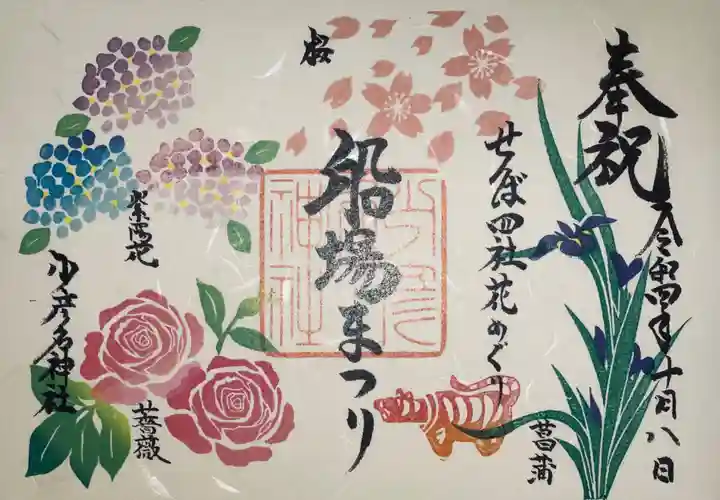 奉祝
令和四年十月八日
せんば四社花めぐり
菖蒲
桜
船場まつり
少彦名神社
紫陽花
薔薇
少彦名神社